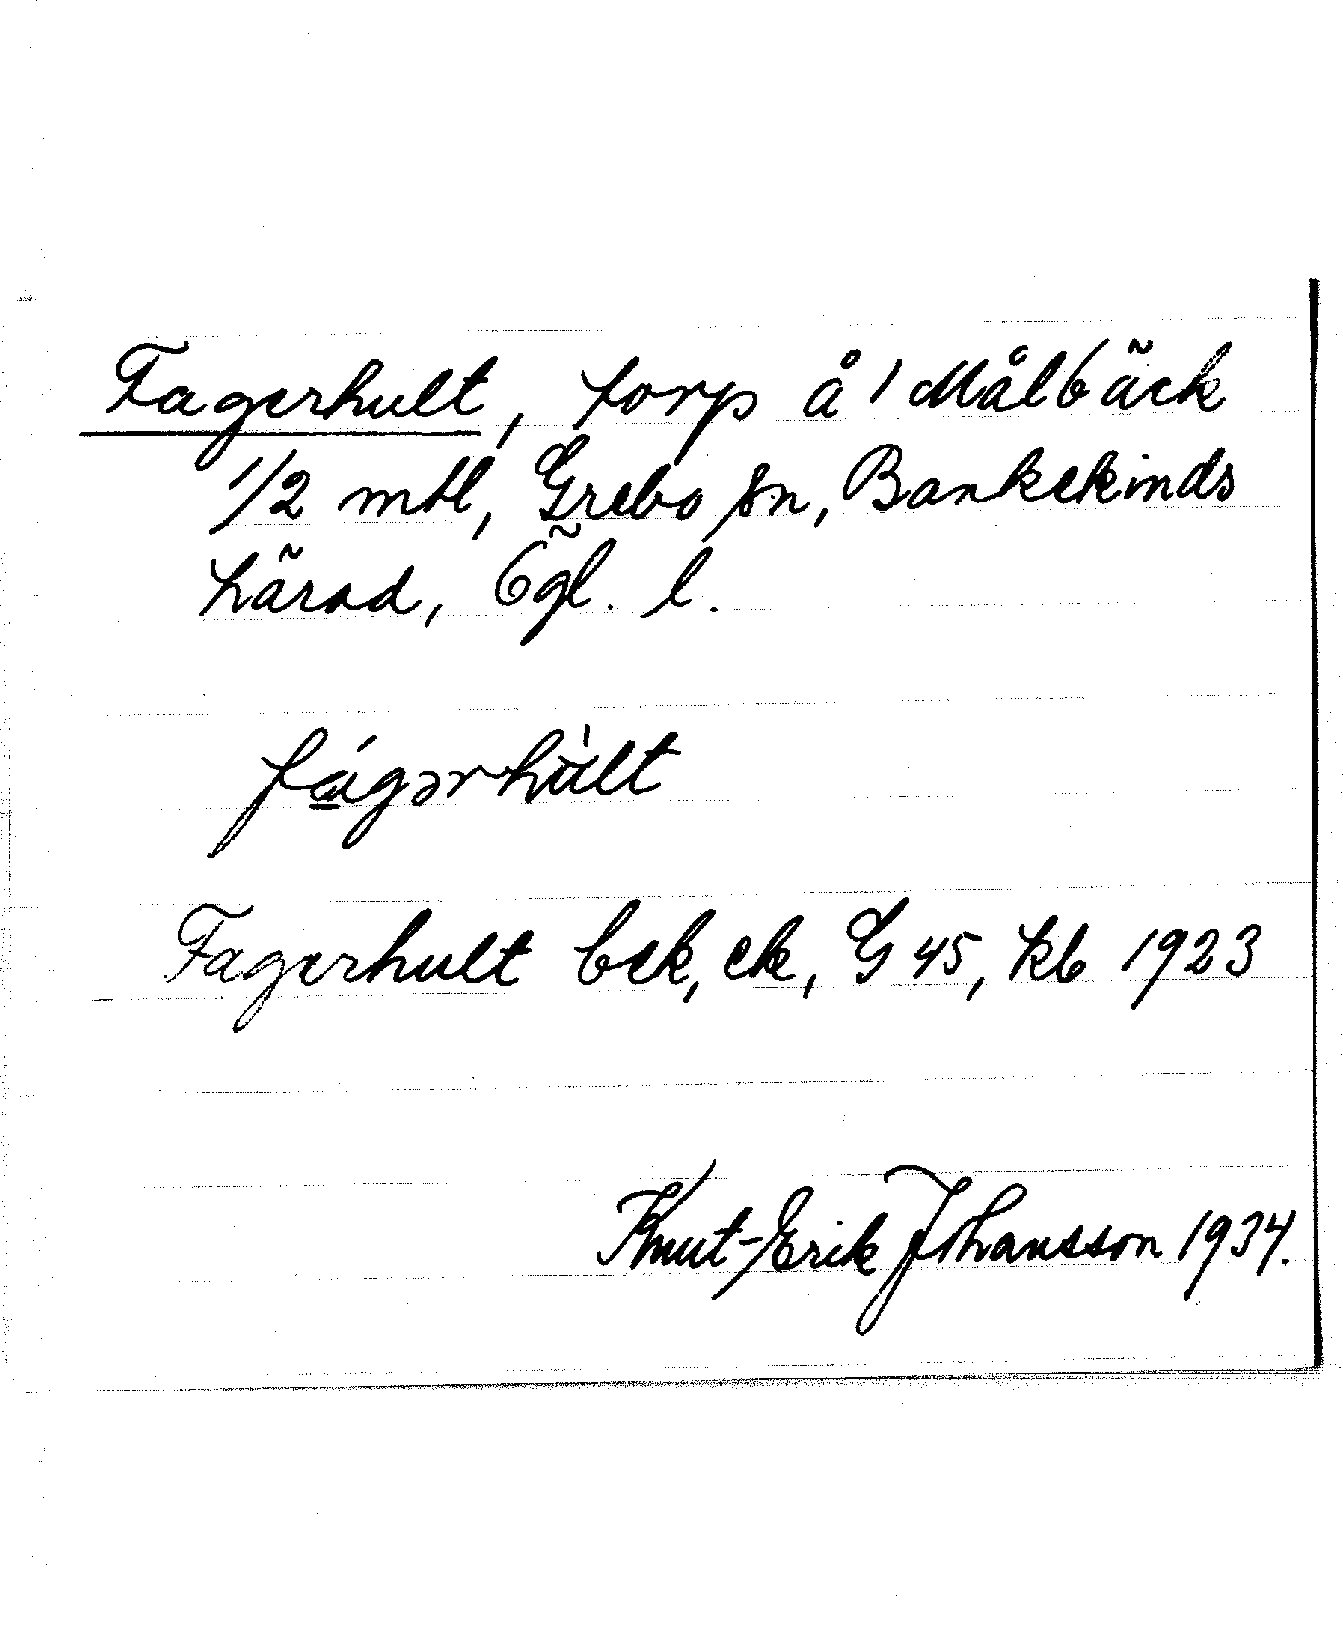 Fagerhult, torp å 1 Målbäck
1/2 mtl, Grebo sn, Bankekinds
härad, Ögl. l.
fágərhùlt
Fagerhult bek, ek, G 45, kb 1923
Knut-Erik Johansson 1934.